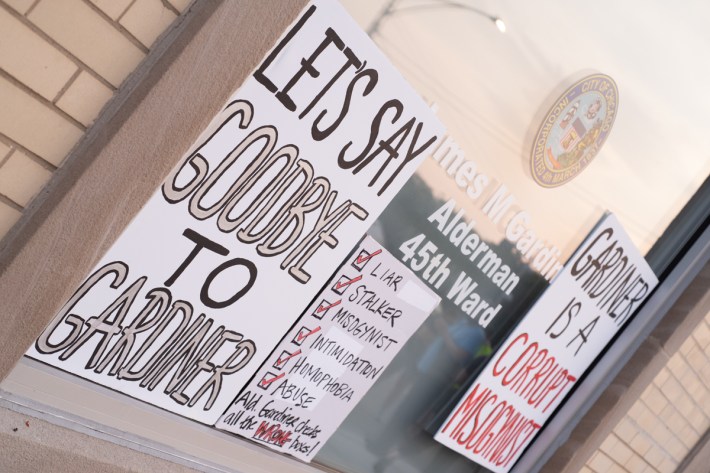 LET'S SAY
GOODBYE
TO
GARDINER
LIAR
STALKER
MISOGYNIST
INTIMIDATION
HOMOPHOBIA
ABUSE
Ald. Gardiner checks
all the WRONG boxes!
James M Gardin
Alderman
45th Ward
CITY OF CHICAGO
INCORPORATED
GARDINER
IS A
CORRUPT
MISOGYNIST